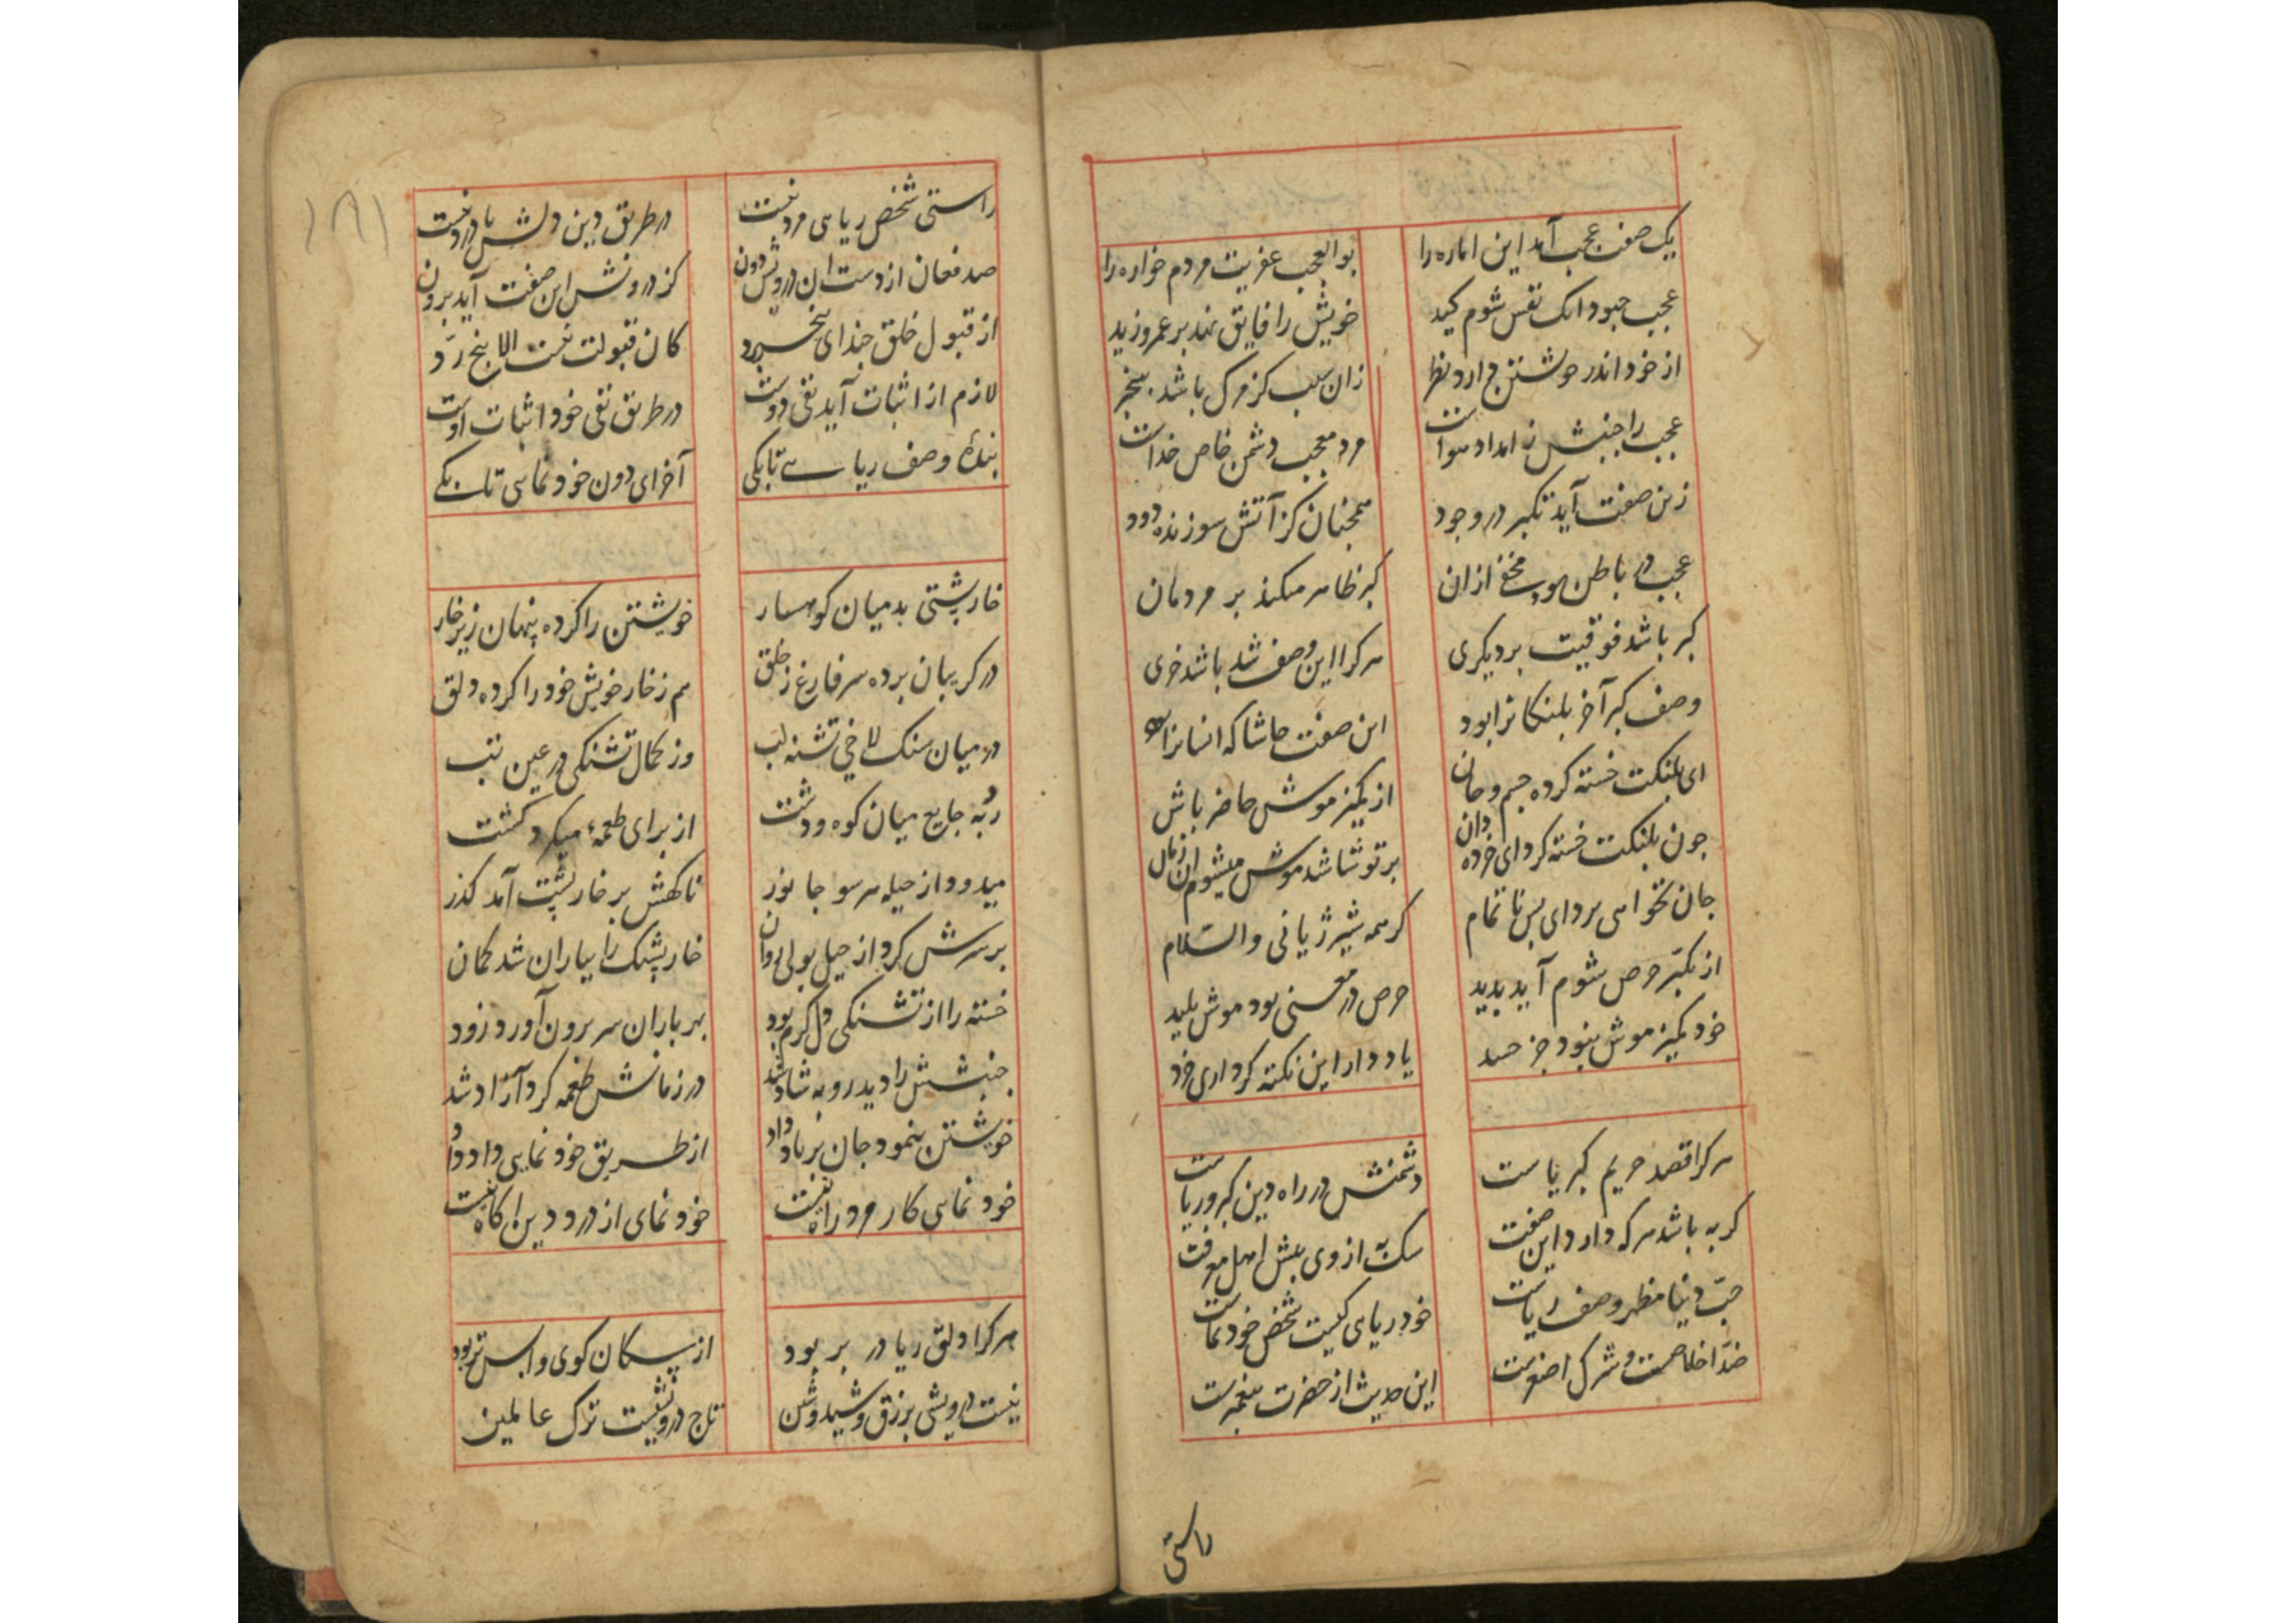 یک صفت عجب آمد این اماره را
بوالعجب عفریت مردم خواره را
عجب چبود انک نفس شوم کید
خویش را فایق نهد بر عمرو زید
از خود اندر خویشتن دارد نظر
زان سبب کز مرک باشد بیخبر
عجب را جنبش ز امداد هواست
مرد معجب دشمن خاص خداست
زین صفت آید تکبر در وجود
همچنان کز آتش سوزنده دود
عجب در باطن بود مخفی ازان
کبر ظاهر میکند بر مردمان
کبر باشد فوقیت بر دیکری
هرکرا این وصف شد باشد خری
وصف کبر آخر پلنکانرا بود
این صفت حاشا که انسانرا بود
ای پلنکت خسته کرده جسم و جان
از کمیز موش حاضر باش
چون پلنکت خسته کرد ای خرده دان
بر تو شاشد موش میشوم ان زمان
جان نخواهی برد ای بس ناتمام
کر همه شیر ژیانی والسلام
از تکبر حرص شوم آید پدید
حرص در معنی بود موش پلید
خود کمیز موش نبود جز حسد
یاد دار این نکته کر داری خرد
هرکرا قصد حریم کبریاست
دشمنش در راه دین کبر و ریاست
کربه باشد هرکه دارد این صفت
سک به از وی پیش اهل معرفت
حب دنیا مظهر وصف ریاست
خود ریایی کیست شخص خودنماست
ضد اخلاصست و شرک اصغرست
این حدیث از حضرت پیغمبرست
راستی
۱۸۱
راستی شخص ریایی مرد نیست
در طریق دین دلش با درد نیست
صد فغان از دست ان درویش دون
کز درونش این صفت آید برون
از قبول خلق چندای بیخرد
کان قبولت نیست الا بیخ رد
لازم از اثبات آید نفی دوست
در طریق نفی خود اثبات اوست
بندهٔ وصف ریایی تا بکی
آخر ای دون خود نمایی تا بکی
خارپشتی بد میان کوهسار
خویشتن را کرده پنهان زیر خار
در کریبان برده سر فارغ ز خلق
هم ز خار خویش خود را کرده دلق
در میان سنک لاخی تشنه لب
وز کمال تشنکی در عین تب
ربه جایع میان کوه و دشت
از برای طعمه میکرد کشت
میدود از حیله هر سو جانور
ناکهش بر خارپشت آمد کذر
بر سرش کرد از حیل بولی روان
خارپشتک را بباران شد کمان
خسته را از تشنکی دل کرم بود
بهر باران سر برون آورد زود
جنبشش را دید روبه شاد شد
در زمانش طعمه کرد آزاد شد
خویشتن بنمود جان بر باد داد
از طریق خود نمایی داد داد
خود نمایی کار مرد راه نیست
خود نمای از درد دین اکاه نیست
هرکرا دلق ریا در بر بود
از سکان کوی واپس تر بود
نیست درویشی بزرق و شید و شین
تاج درویشیست ترک عالمین